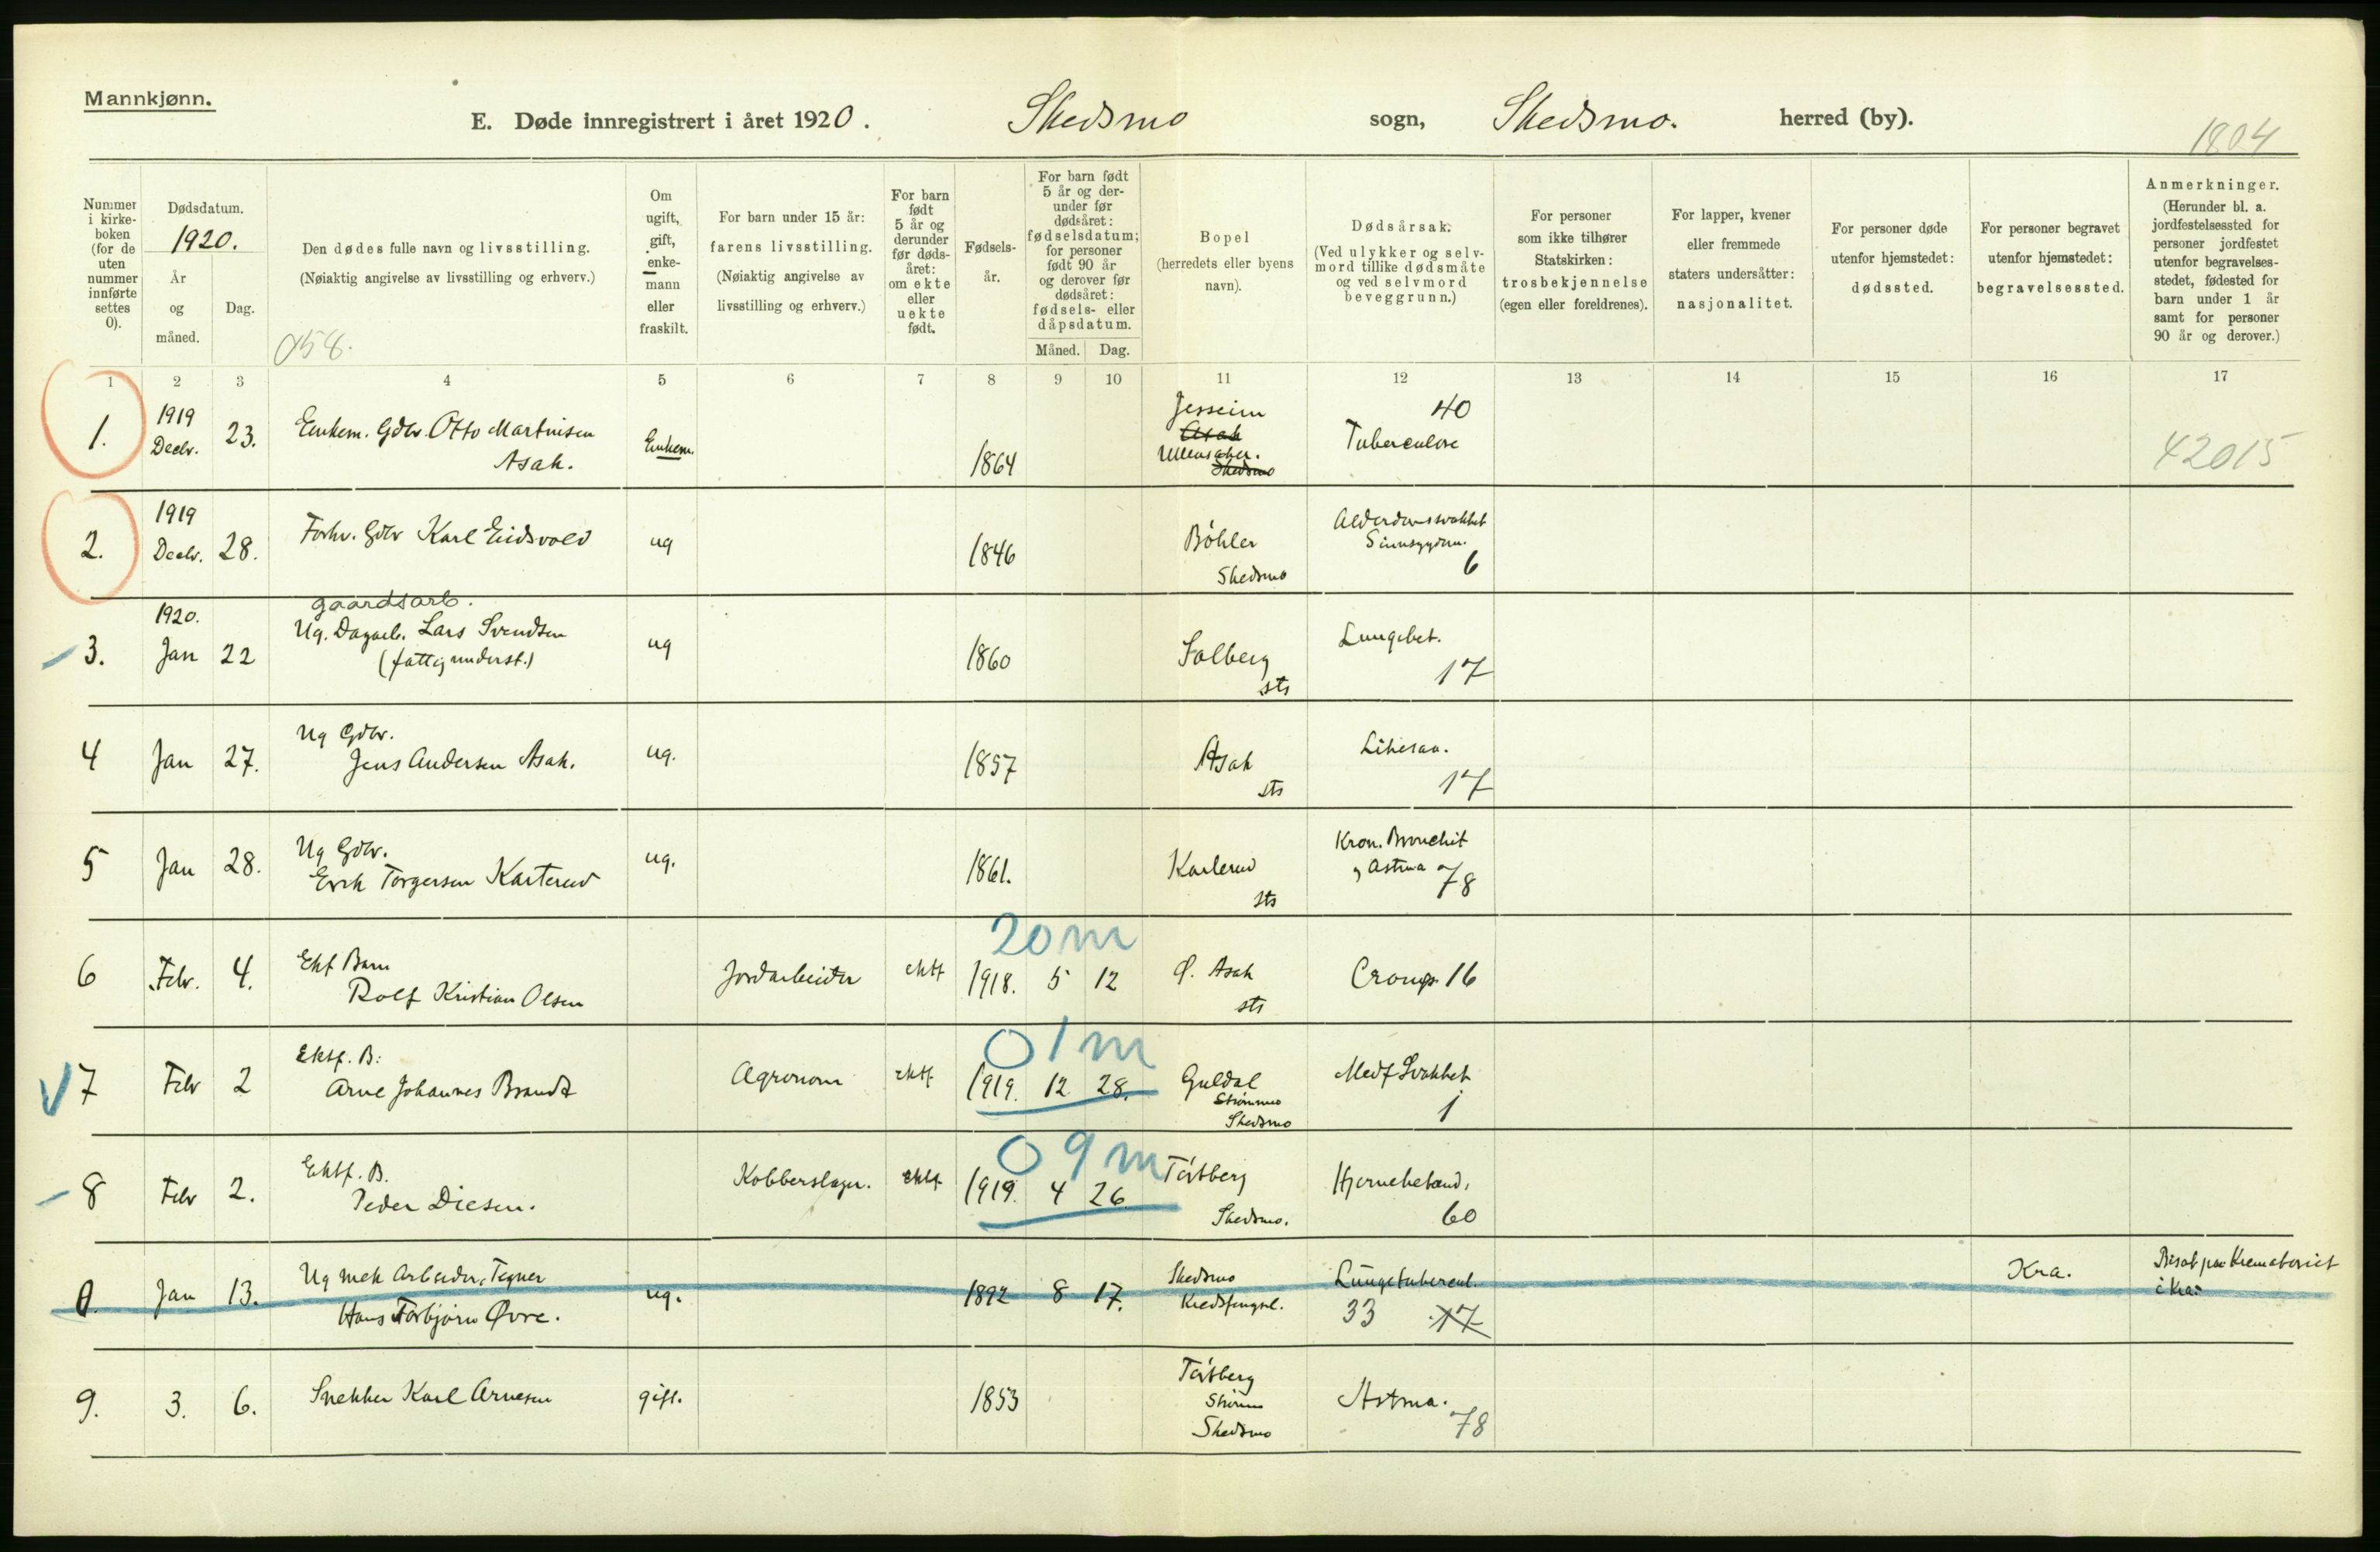 Mannkjønn.
E. Døde innregistrert i året 1920. Skedsmo sogn, Skedsmo. herred (by).
1804
Nummer i kirke-boken (for de uten nummer innførte settes 0).
Dødsdatum.
1920.
År og måned.
Dag.
Den dødes fulle navn og livsstilling.
(Nøiaktig angivelse av livsstilling og erhverv.)
058.
Om ugift, gift, enke-mann eller fraskilt.
For barn under 15 år: farens livsstilling.
(Nøiaktig angivelse av livsstilling og erhverv.)
For barn født 5 år og derunder før døds-året: om ekte eller uekte født.
Fødsels-år.
For barn født 5 år og der-under før dødsåret: fødselsdatum; for personer født 90 år og derover før dødsåret: fødsels- eller dåpsdatum.
Måned. Dag.
Bopel
(herredets eller byens navn).
Dødsårsak.
(Ved ulykker og selv-mord tillike dødsmåte og ved selvmord beveggrunn.)
For personer som ikke tilhører Statskirken: trosbekjennelse (egen eller foreldrenes).
For lapper, kvener eller fremmede staters undersåtter: nasjonalitet.
For personer døde utenfor hjemstedet: dødssted.
For personer begravet utenfor hjemstedet: begravelsessted.
Anmerkninger.
(Herunder bl. a. jordfestelsessted for personer jordfestet utenfor begravelses-stedet, fødested for barn under 1 år samt for personer 90 år og derover.)
1 2 3 4 5 6 7 8 9 10 11 12 13 14 15 16 17
1. 1919 Decbr. 23. Enkem. Gdbr. Otto Martinisen Asak. Enkem. 1864 Jesseim Asak Ullensaker. Skedsmo 40 Tuberculose 42015
2. 1919 Decbr. 28. Forhv. Gdbr Karl Eidsvold ug 1846 Böhler Skedsmo Alderdomssvakhet Sinnsygdom. 6
3. 1920. Jan 22 gaardsarb. Ug. Dagarb. Lars Svendsen (fattigunderst.) ug 1860 Solberg sts Lungebet. 17
4 Jan 27. Ug Gdbr. Jens Andersen Asak. ug. 1857 Asak sts 17
5 Jan 28. Ug Gdbr. Erik Torgersen Karterud ug. 1861. Karlerud sts Kron. Bronchit og Astma 78
20 m
6 Febr. 4. Ekf Barn Rolf Kristian Olsen Jordarbeider ektf 1918. 5 12 Ø. Asak sts Croup. 16
0 1 m
7 Febr 2 Ektf. B: Arne Johannes Brandt Agronom ektf 1919. 12 28. Guldal Strömmen Skedsmo Medf Svakhet 1
0 9 m
8 Febr 2. Ektf. B. Peder Diesen. Kobberslager. ektf 1919. 4 26. Törtberg Skedsmo. Hjernebetænd. 60
0. Jan 13. Ug mek Arbeider, Tegner Hans Torbjörn Øvre. ug. 1892 8 17. Skedsmo Kredsfengsel. Lungetubercul. 33 17 Kra. Bisat paa Krematoriet i Kra:
9. 3. 6. Snekker Karl Arnesen gift. 1853 Törtberg Strömm Skedsmo Astma. 78